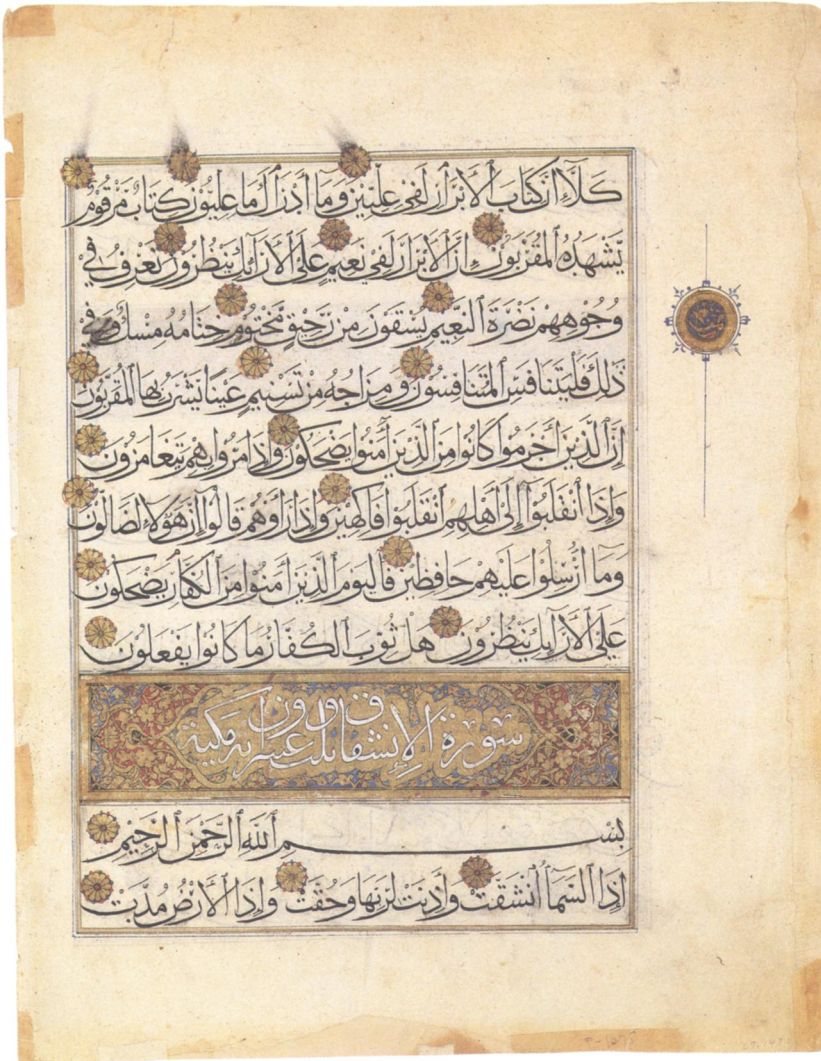 كَلَّا إِنَّ كِتَابَ ٱلْأَبْرَارِ لَفِي عِلِّيِّينَ وَمَا أَدْرَاكَ مَا عِلِّيُّونَ كِتَابٌ مَرْقُومٌ
يَّشْهَدُهُ ٱلْمُقَرَّبُونَ إِنَّ ٱلْأَبْرَارَ لَفِي نَعِيمٍ عَلَى ٱلْأَرَآئِكِ يَنْظُرُونَ تَعْرِفُ فِي
وُجُوهِهِمْ نَضْرَةَ ٱلنَّعِيمِ يُسْقَوْنَ مِنْ رَّحِيقٍ مَّخْتُومٍ خِتَامُهُ مِسْكٌ وَفِي
ذَلِكَ فَلْيَتَنَافَسِ ٱلْمُتَنَافِسُونَ وَمِزَاجُهُ مِنْ تَسْنِيمٍ عَيْنًا يَشْرَبُ بِهَا ٱلْمُقَرَّبُونَ
إِنَّ ٱلَّذِينَ أَجْرَمُوا كَانُوا مِنَ ٱلَّذِينَ آمَنُوا يَضْحَكُونَ وَإِذَا مَرُّوا بِهِمْ يَتَغَامَزُونَ
وَإِذَا ٱنْقَلَبُوٓا إِلَىٰٓ أَهْلِهِمُ ٱنْقَلَبُوا فَاكِهِينَ وَإِذَا رَأَوْهُمْ قَالُوٓا إِنَّ هَؤُلَاءِ لَضَالُّونَ
وَمَآ أُرْسِلُوا عَلَيْهِمْ حَافِظِينَ فَالْيَوْمَ ٱلَّذِينَ آمَنُوا مِنَ ٱلْكُفَّارِ يَضْحَكُونَ
عَلَى ٱلْأَرَآئِكِ يَنْظُرُونَ هَلْ ثُوِّبَ ٱلْكُفَّارُ مَا كَانُوا يَفْعَلُونَ
سورة الإنشقاق وعشرون مكية
بِسْمِ ٱللَّهِ ٱلرَّحْمَٰنِ ٱلرَّحِيمِ
إِذَا ٱلسَّمَآءُ ٱنْشَقَّتْ وَأَذِنَتْ لِرَبِّهَا وَحُقَّتْ وَإِذَا ٱلْأَرْضُ مُدَّتْ